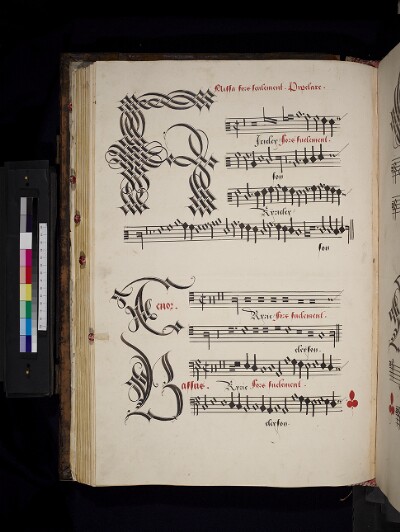 Missa fors seulement. Pipelare.
fors seulement.
son
Kyrie
son
Tenor.
Kyrie fors seulement.
eleyson.
Bassus. Kyrie fors seulement.
eleyson.